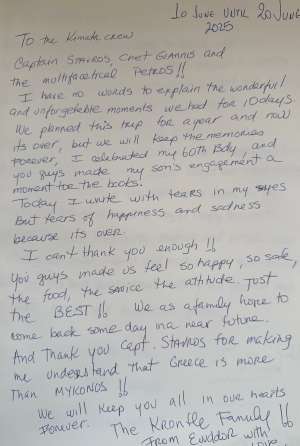 10 JUNE UNTIL 20 JUNE
2025
To the Kimata crew
Captain STAVROS, CHEF GIANNIS and
the multifacetical PETROS!!
I have no words to explain the wonderful
and unforgetable moments we had for 10 days.
We planned this trip for a year and now
its over, but we will keep the memories
Forever, I celebrated my 60TH Bday, and
you guys made my son's engagement a
moment for the books.
Today I write with tears in my eyes
But tears of happiness and sadness
because its over
I can't thank you enough!!
You guys made us feel so happy, so safe,
the food, the service the attitude. Just
the BEST!! We as a family hope to
come back some day in a near future.
And Thank you Capt. STAVROS for making
me understand that Greece is more
Than MYKONOS!!
We will keep you all in our hearts
Forever. The Kronfle Family!!
From Ecuador with
love